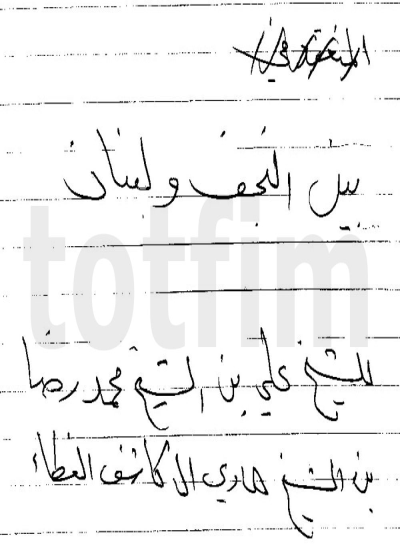 بين النجف ولبنان
totfim
للشيخ علي بن الشيخ محمد رضا
بن الشيخ هادي ال كاشف الغطاء